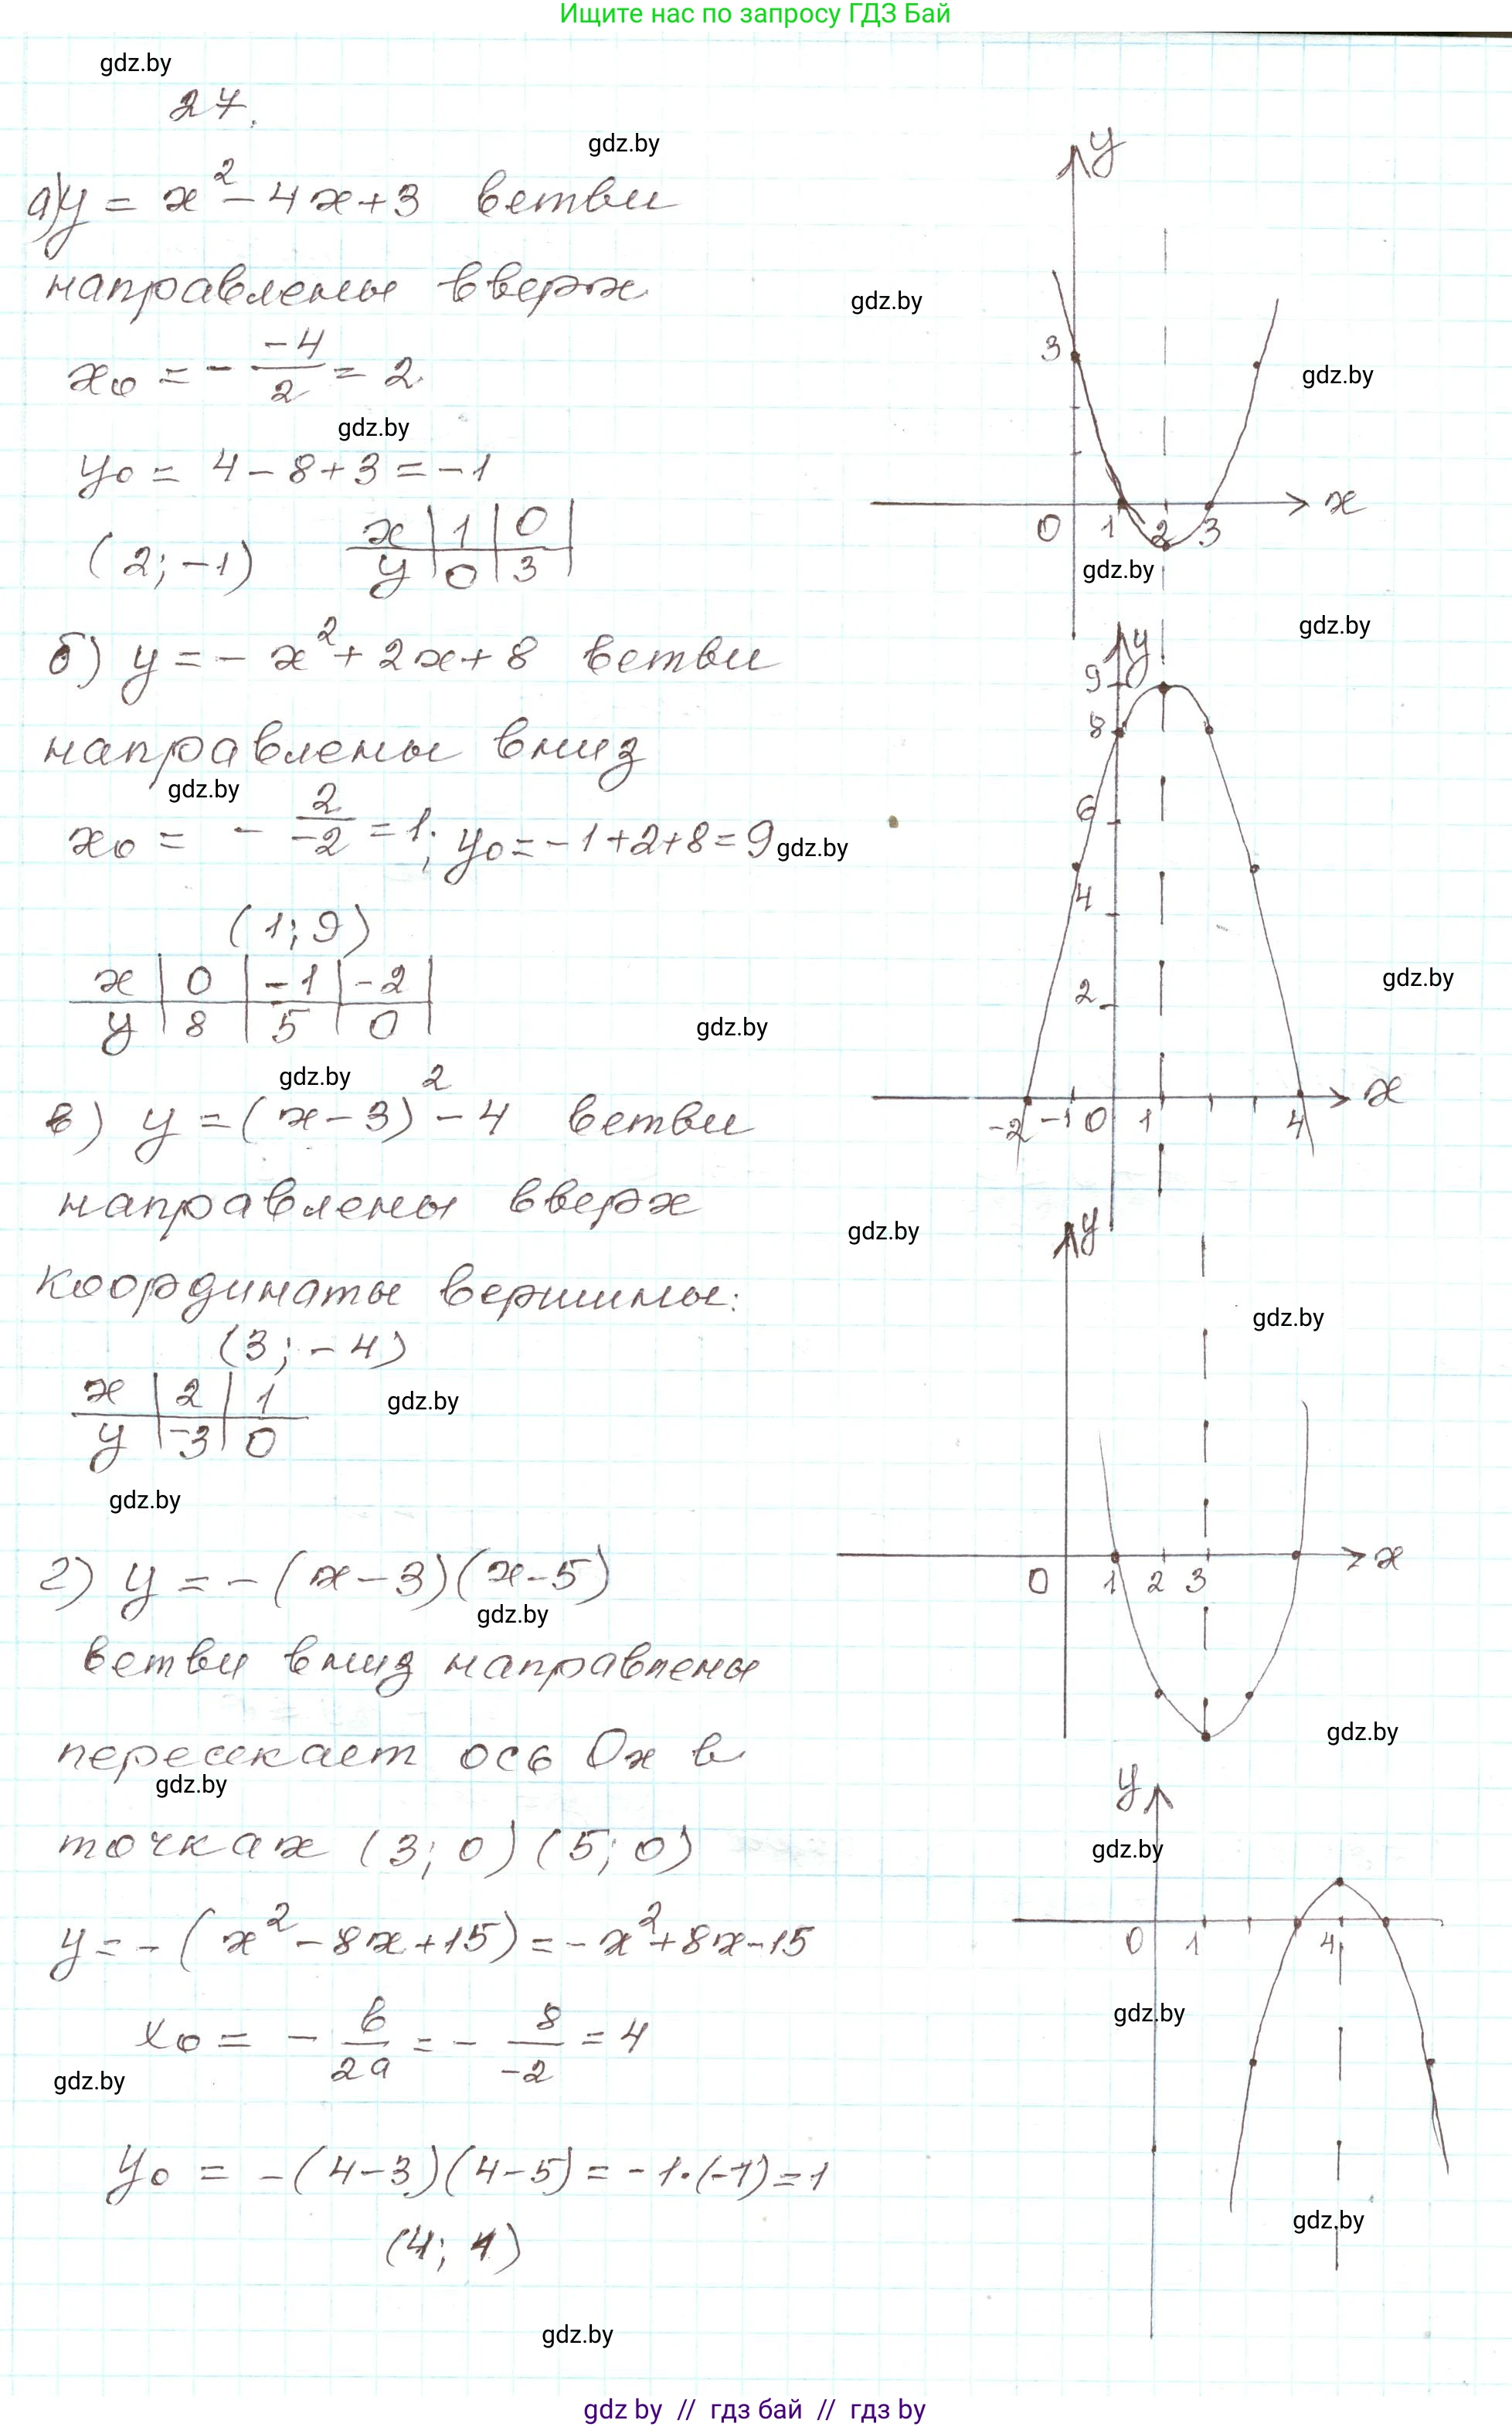 Ищите нас по запросу ГДЗ Бай
gdz.by
27.
gdz.by
а) y = x² - 4x + 3 ветви
направлены вверх
gdz.by
x₀ = - -4/2 = 2.
gdz.by
gdz.by
y₀ = 4 - 8 + 3 = -1
(2; -1)
x | 1 | 0 |
y | 0 | 3 |
y
3
0 1 2 3 x
gdz.by
gdz.by
б) y = - x² + 2x + 8 ветви
направлены вниз
gdz.by
x₀ = - 2/-2 = 1; y₀ = -1+2+8 = 9
gdz.by
(1; 9)
x | 0 | -1 | -2 |
y | 8 | 5 | 0 |
y
9
8
6
4
2
-2 -1 0 1 4 x
gdz.by
gdz.by
gdz.by
в) y = (x - 3)² - 4 ветви
направлены вверх
gdz.by
координаты вершины:
gdz.by
(3; -4)
x | 2 | 1
y | -3 | 0
gdz.by
gdz.by
y
0 1 2 3 x
г) y = - (x - 3)(x - 5)
gdz.by
ветви вниз направлены
gdz.by
пересекает ось Ox в
gdz.by
точках (3; 0) (5; 0)
gdz.by
y = - (x² - 8x + 15) = - x² + 8x - 15
y
0 1 4
gdz.by
x₀ = - b/2a = - 8/-2 = 4
gdz.by
y₀ = -(4-3)(4-5) = -1·(-1) = 1
gdz.by
(4; 1)
gdz.by
gdz by // гдз бай // гдз by